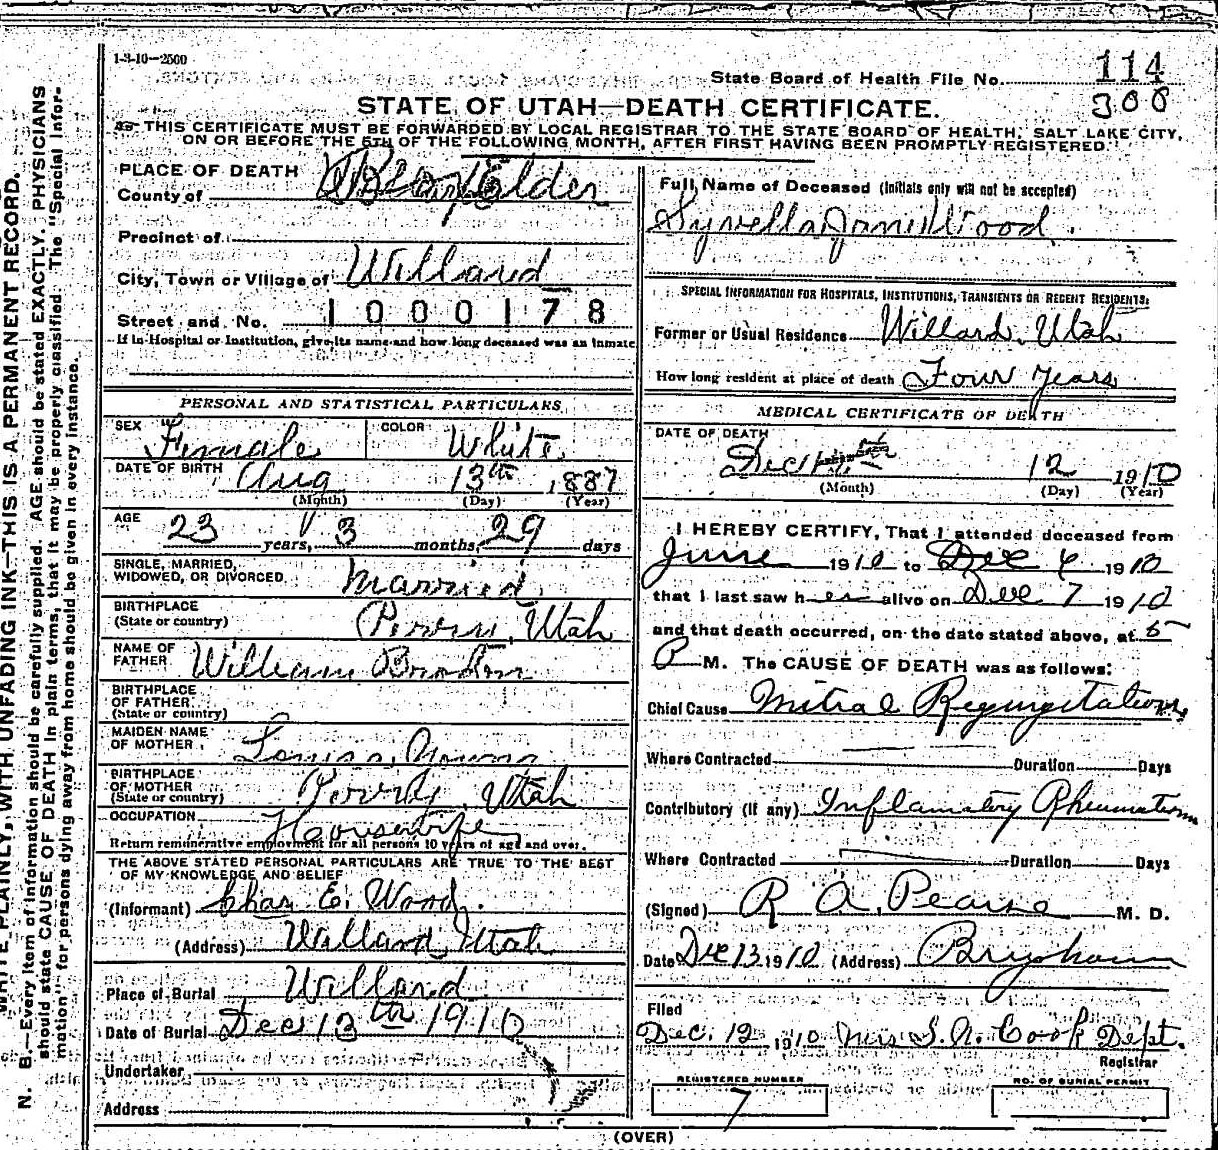 1-3-10—2500
State Board of Health File No. 114
300
STATE OF UTAH—DEATH CERTIFICATE.
THIS CERTIFICATE MUST BE FORWARDED BY LOCAL REGISTRAR TO THE STATE BOARD OF HEALTH, SALT LAKE CITY,
ON OR BEFORE THE 5TH OF THE FOLLOWING MONTH, AFTER FIRST HAVING BEEN PROMPTLY REGISTERED.
PLACE OF DEATH
County of Box Elder
Precinct of
City, Town or Village of Willard
Street and No. 1000178
If in Hospital or Institution, give its name and how long deceased was an inmate
PERSONAL AND STATISTICAL PARTICULARS
SEX Female COLOR White
DATE OF BIRTH Aug 13th 1887
(Month) (Day) (Year)
AGE 23 years, 3 months, 29 days
SINGLE, MARRIED,
WIDOWED, OR DIVORCED Married
BIRTHPLACE
(State or country) Utah
NAME OF
FATHER William
BIRTHPLACE
OF FATHER
(State or country)
MAIDEN NAME
OF MOTHER Louisa
BIRTHPLACE
OF MOTHER
(State or country) Utah
OCCUPATION Housewife
Return remunerative employment for all persons 10 years of age and over.
THE ABOVE STATED PERSONAL PARTICULARS ARE TRUE TO THE BEST
OF MY KNOWLEDGE AND BELIEF
(Informant) Chas E. Wood.
(Address) Willard, Utah
Place of Burial Willard
Date of Burial Dec 13th 1910
Undertaker
Address
Full Name of Deceased (Initials only will not be accepted)
Wood.
SPECIAL INFORMATION FOR HOSPITALS, INSTITUTIONS, TRANSIENTS OR RECENT RESIDENTS:
Former or Usual Residence Willard, Utah
How long resident at place of death Four years
MEDICAL CERTIFICATE OF DEATH
DATE OF DEATH
Dec 12 1910
(Month) (Day) (Year)
I HEREBY CERTIFY, That I attended deceased from
June 1910 to Dec 1910
that I last saw her alive on Dec 7 1910
and that death occurred, on the date stated above, at 5
P M. The CAUSE OF DEATH was as follows:
Chief Cause Mitral Regurgitation
Where Contracted Duration Days
Contributory (if any) Inflamatory Rheumatism
Where Contracted Duration Days
(Signed) R A. Pearse M. D.
Date Dec 13 1910 (Address) Brigham
Filed
Dec. 12 1910 Mrs S. N. Cook Dept.
Registrar
REGISTERED NUMBER
7
NO. OF BURIAL PERMIT
(OVER)
WRITE PLAINLY, WITH UNFADING INK—THIS IS A PERMANENT RECORD.
N. B.—Every item of information should be carefully supplied. AGE should be stated EXACTLY. PHYSICIANS
should state CAUSE OF DEATH in plain terms, that it may be properly classified. The "Special Infor-
mation" for persons dying away from home should be given in every instance.